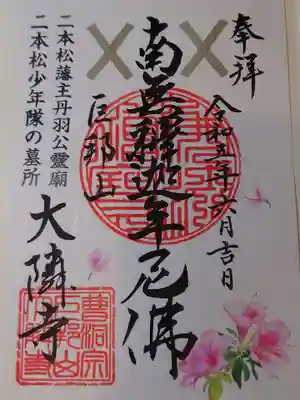 奉拝
令和五年六月吉日
南無釋迦牟尼佛
巨邦山
大隣寺
二本松藩主丹羽公霊廟
二本松少年隊の墓所
曹洞宗